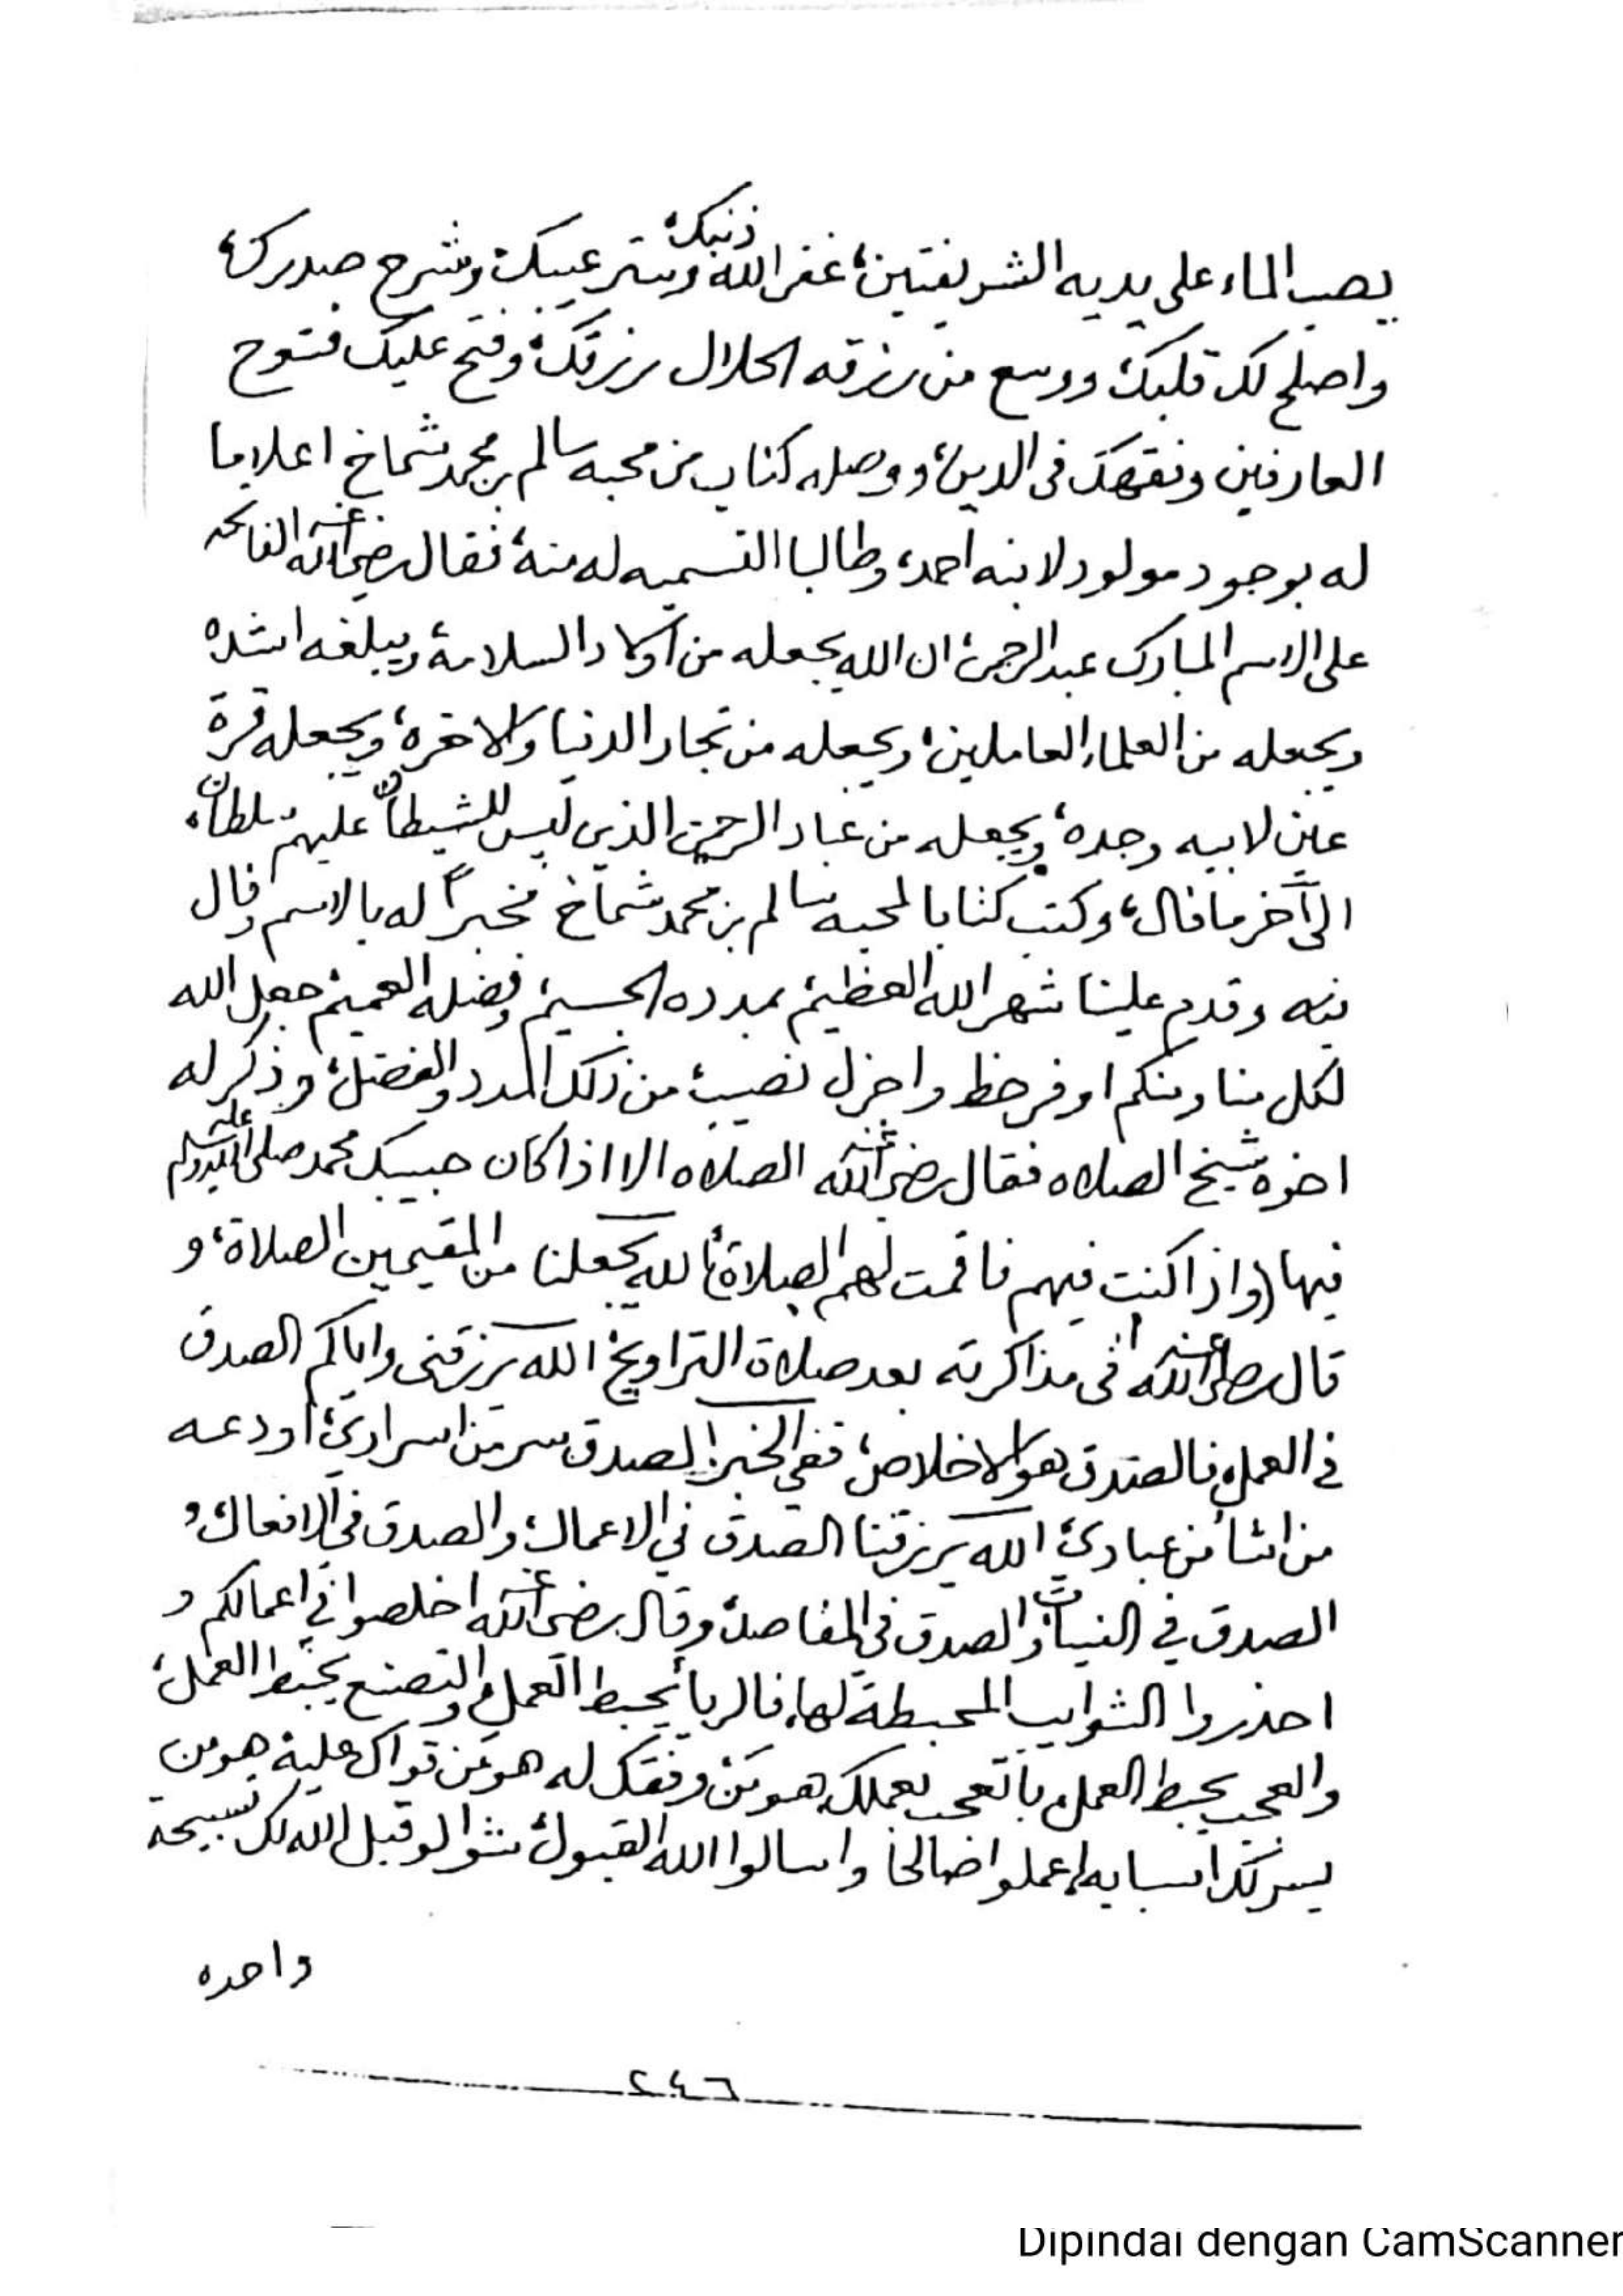 يصب الماء على يديه الشريفتين، غفر الله ذنبك، وستر عيبك، وشرح صدرك،
واصلح لك قلبك، ووسع من رزقه الحلال رزقك، وفتح عليك فتوح
العارفين وفقهك فى الدين، ووصله كتاب من محبه سالم بن محمد شماخ اعلاما
له بوجود مولود لابنه احمد، وطالبا التسميه له منه، فقال رضي الله عنه الفاتحه
على الاسم المبارك عبدالرحمن، ان الله يجعله من اولاد السلامة، ويبلغه اشده
ويجعله من العلماء العاملين، ويجعله من تجار الدنيا والاخره، ويجعله قرة
عين لابيه وجده، ويجعله من عباد الرحمن الذين ليس للشيطان عليهم سلطان،
الى آخر ما قال، وكتب كتابا لمحبه سالم بن محمد شماخ مخبراً له بالاسم وقال
فيه وقدم علينا شهر الله العظيم، بمدده الجسيم، وفضله العميم، جعل الله
لكل منا ومنكم اوفر حظ واجزل نصيب، من ذلك المدد والفضل، وذكر له
اخوه شيخ الصلاه فقال رضي الله عنه الصلاه الا اذا كان حبيبك محمد صلى الله عليه وآله وسلم
فيها (واذا كنت فيهم فاقمت لهم الصلاة) الله يجعلنا من المقيمين الصلاة، و
قال رضي الله عنه فى مذاكرته بعد صلاة التراويح، الله يرزقنى واياكم الصدق
في العمل، فالصدق هو الاخلاص، ففي الخبر: الصدق سر من اسراري، أودعه
من اشأ من عبادي، الله يرزقنا الصدق في الاعمال، والصدق فى الافعال، و
الصدق في النيات، والصدق فى المقاصد، وقال رضي الله عنه اخلصوا في اعمالكم و
احذروا الشوايب المحبطة لها، فالريأ يحبط العمل، والتصنع يحبط العمل،
والعجب يحبط العمل، با تعجب بعملك هو مَن وفقك له هو مَن قواك عليه هو من
يسر لك اسبابه، اعملوا صالحا واسالوا الله القبول، شوا لو قبل الله لك تسبيحة
واحده
٢٤٦
Dipindai dengan CamScanner